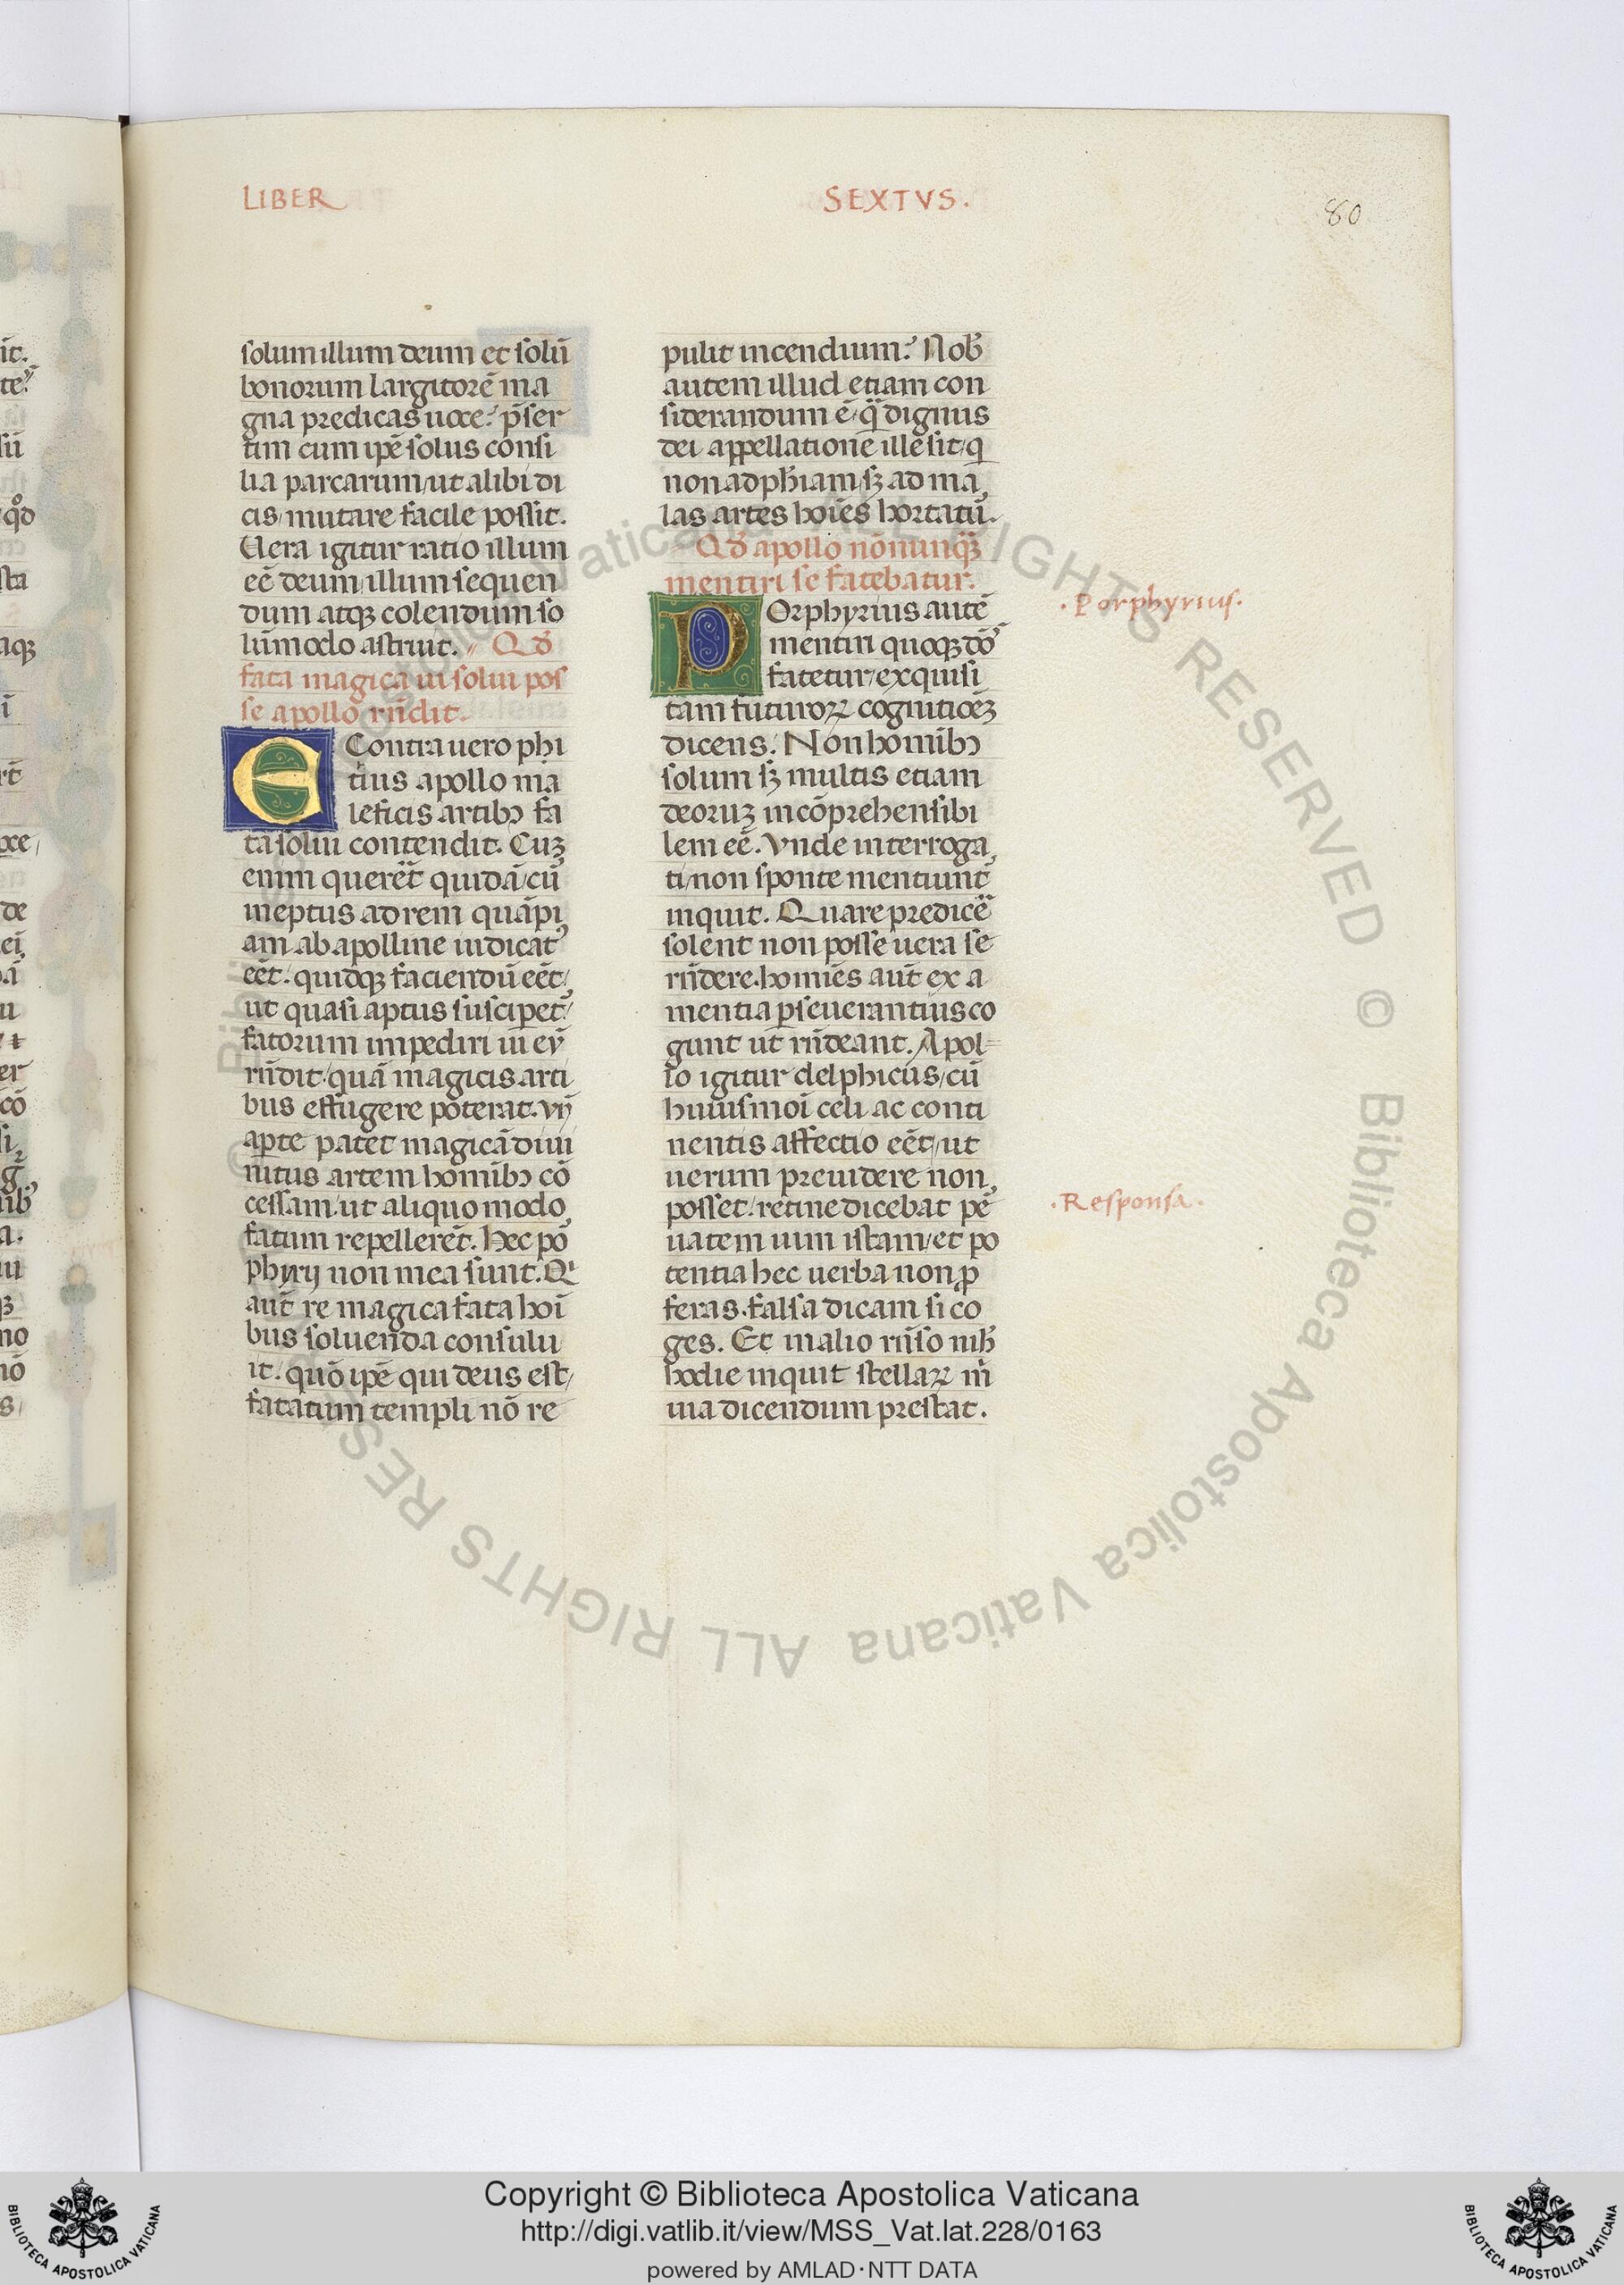 LIBER SEXTVS.
80
solum illum deum et solū
bonorum largitorē ma
gna predicas uoce? p̄ser
tim cum ip̄e solus consi
lia parcarum/ut alibi di
cis/mutare facile possit.
Uera igitur ratio illum
eē deum/illum sequen
dum atqꝫ colendum so
lūmodo astruit. Qđ
fata magica ui solui pos
se apollo rñdit.
E Contra uero phi
tius apollo ma
leficis artibꝰ fa
ta solui contendit. Cuꝫ
enim querēt quidā/cū
ineptus ad rem quāpi
am ab apolline iudicat᾽
eēt. quidqꝫ faciendū eēt/
ut quasi aptus susciperet᾽/
fatorum impediri ui eū
rñdit/quā magicis arti
bus effugere poterat. Vñ
aꝑte patet magicā diui
nitus artem hominibꝰ cō
cessam/ut aliquo modo
fatum repellerēt. Hec por
phyrij non mea sunt. Qi
aūt re magica fata hoī
bus soluenda consulu
it/quō ip̄e qui deus est/
fatatum templi nō re
pulit incendium? Nob̄
autem illud etiam con
siderandum ē/qꝫ dignus
dei appellatione ille sit/q
non ad ph̄iam/sꝫ ad ma
las artes hoīes hortatur.
Qđ apollo nōnunqꝫ
mentiri se fatebatur.
POrphyrius autē
mentiri quoqꝫ
fatetur/exquisi
tam futuroꝝ cognitioēꝫ
dicens. Non hominibꝰ
solum sꝫ multis etiam
deoruꝫ incōprehensibi
lem eē. Vnde interroga
ti/non sponte mentiunt᾽
inquit. Quare predicere
solent non posse uera se
rñdere. homines aūt ex a
mentia ꝑseuerantius co
gunt ut rñdeant. Apol=
lo igitur delphicus/cū
huiusmoī celi ac conti
nentis affectio eēt/ut
uerum preuidere non
posset/retine dicebat
uatem uim istam/et po
tentia hec uerba non ꝓ
feras. falsa dicam si co
ges. Et in alio rñso nih̄
hodie inquit stellaꝝ
uia dicendum prestat.
.Porphyrius.
.Responsa.
it.
te?
sū
qđ
sta
aqꝫ
de
ei,
er
cō
nō
© Biblioteca Apostolica Vaticana ALL RIGHTS RESERVED © Biblioteca Apostolica Vaticana ALL RIGHTS RESERVED
Copyright © Biblioteca Apostolica Vaticana
http://digi.vatlib.it/view/MSS_Vat.lat.228/0163
powered by AMLAD·NTT DATA
BIBLIOTECA APOSTOLICA VATICANA
BIBLIOTECA APOSTOLICA VATICANA